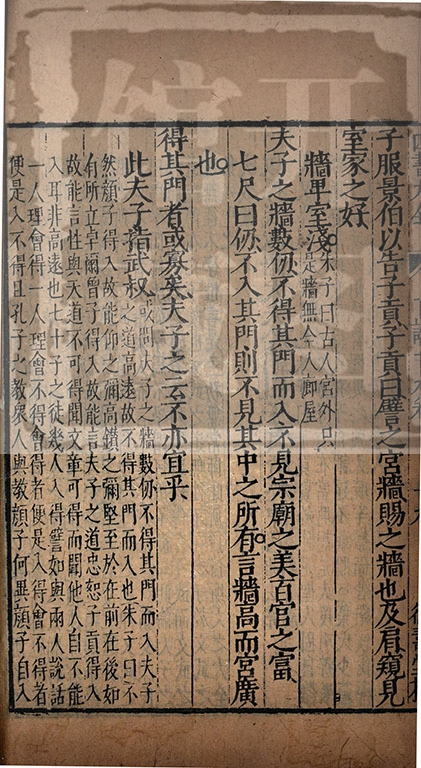 子服景伯以告子貢子貢曰譬之宮牆賜之牆也及肩窺見
室家之好
牆卑室淺
朱子曰古人宮外只
是牆無今人廊屋
夫子之牆數仞不得其門而入不見宗廟之美百官之富
七尺曰仞不入其門則不見其中之所有言牆高而宮廣
也
得其門者或寡矣夫子之云不亦宜乎
此夫子指武叔
或問夫子之牆數仞不得其門而入夫子
之道高遠故不得其門而入也朱子曰不
然顏子得入故能仰之彌高鑽之彌堅至於在前在後如
有所立卓爾曾子得入故能言夫子之道忠恕子貢得入
故能言性與天道不可得聞文章可得而聞他人自不能
入耳非高遠也七十子之徒幾人入得譬如與兩人說話
一人理會得一人理會不得會得者便是入得會不得者
便是入不得且孔子之教眾人與教顏子何異顏子自入